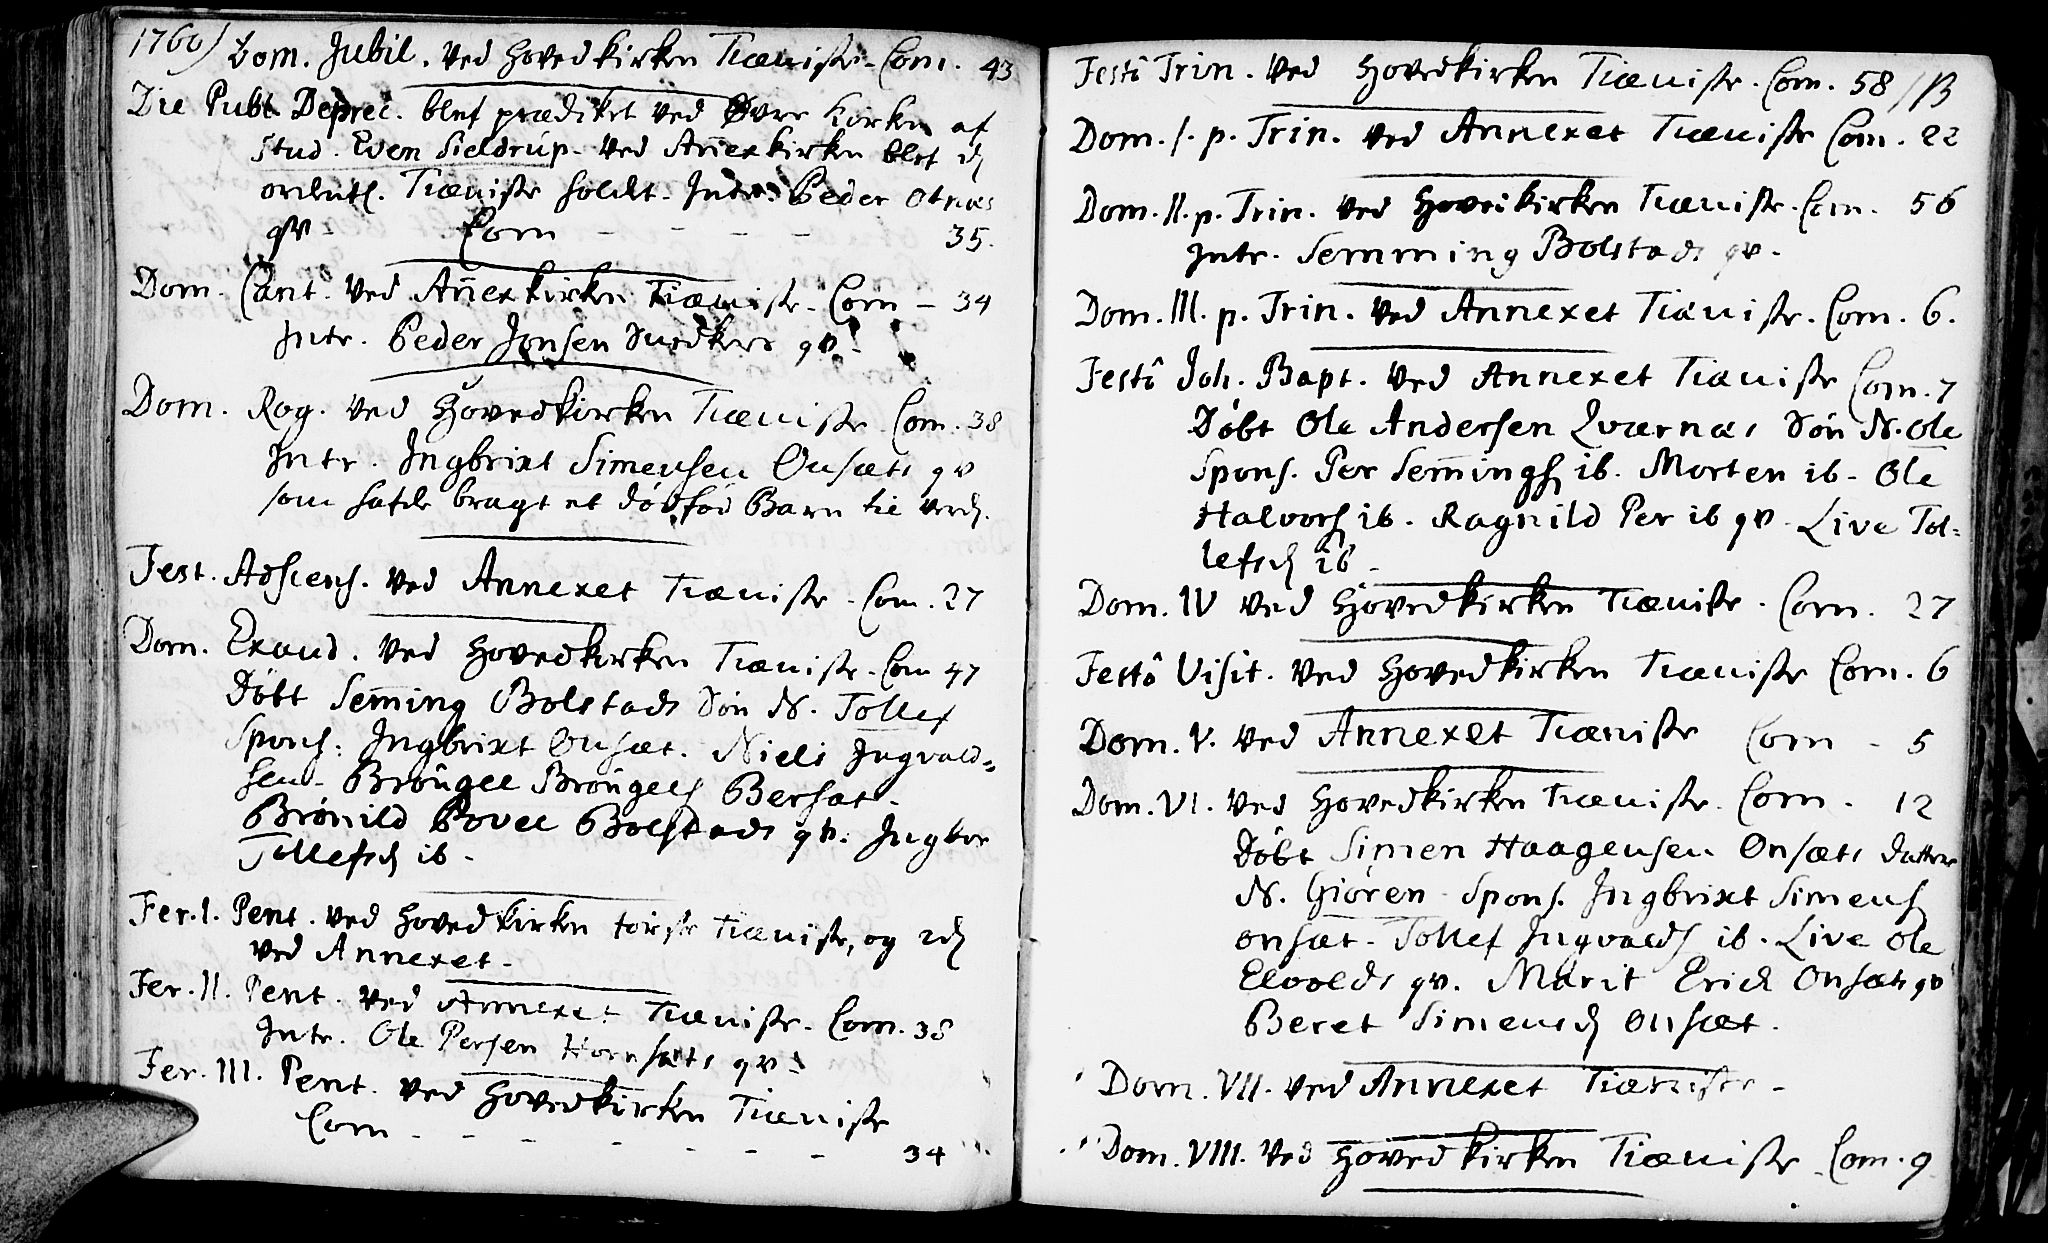 1760) Dom. Jubil. ved Hovedkirken Tiæniste. Com. 43
Die Publ. Deprec. blef prædiket ved Øvre Kirken af
Stud. Even Sieldrup. ved Añexkirken blef d
ordentl. Tiæniste holdt. Intr. Peder Otnæs
qv - Com - - - - 35.
Dom. Cant. ved Añexkirken Tiæniste. Com - 34
Intr. Peder Jonsen qv.
Dom. Rog. ved Hovedkirken Tiæniste. Com. 38
Intr. Ingbrixt Simensen Onsæts qv
som hafde bragt et dødfød Barn til verd.
Fest. Adscens. ved Annexet Tiæniste. Com. 27
Dom. Exaud. ved Hovedkirken Tiæniste. Com 47
Døbt Seming Bolstads Søn N. Tollef
Spons: Ingbrixt Onsæt. Niels Ingvald=
sen. Brøngel Brøngels Bersæt.
Brønild Povel Bolstads qv. Ingbor
Tollefsd ib.
Fer. I. Pent. ved Hovedkirken første Tiæniste, og 2d
ved Annexet.
Fer. II. Pent. ved Annexet Tiæniste. Com. 38
Intr. Ole Persen Hornsæts qv.
Fer. III. Pent. ved Hovedkirken Tiæniste
Com - - - - - - - 34
Festô Trin. ved Hovedkirken Tiæniste. Com. 58 /ß
Dom. I. p. Trin. ved Annexet Tiæniste Com. 22
Dom. II. p. Trin. ved Hovedkirken Tiæniste. Com. 56
Intr. Semming Bolstads qv.
Dom. III. p. Trin. ved Annexet Tiæniste. Com. 6.
Festô Joh. Bapt. ved Annexet Tiæniste Com. 7
Døbt Ole Andersen Qværnæs Søn N. Ole
Spons. Per Semings ib. Morten ib. Ole
Halvors ib. Ragnild Per ib qv. Live Tol=
lefsd ib.
Dom. IV ved Hovedkirken Tiæniste. Com. 27
Festô Visit. ved Hovedkirken Tiæniste Com. 6
Dom. V. ved Annexet Tiæniste Com - 5
Dom. VI. ved Hovedkirken Tiæniste. Com. 12
Døbt Simen Haagensen Onsæts datter
N. Giøren. Spons. Ingbrixt Simens
onsæt. Tollef Ingvalds ib. Live Ole
Elvolds qv. Marit Erich Onsæts qv
Beret Simensd Onsæt.
Dom. VII. ved Annexet Tiæniste.
Dom. VIII. ved Hovedkirken Tiæniste. Com. 9